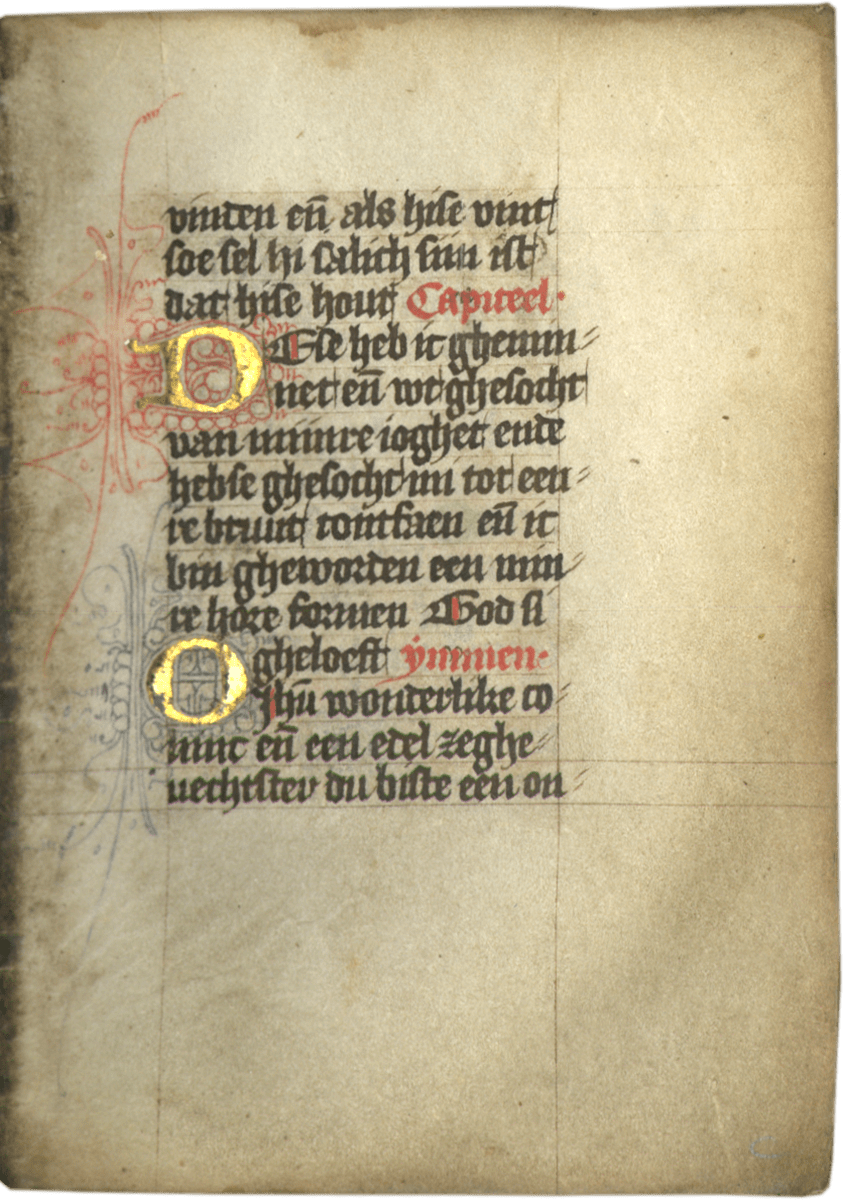 vinden en̄ als hise vint
soe sel hi salich sijn ist
dat hise hout Capiteel·
DEse heb ic ghemin⸗
net en̄ wtghesocht
van mijnre ioghet ende
hebse ghesocht mi tot een⸗
re bruut tontfaen en̄ ic
bin gheworden een min⸗
re hore formen God si
gheloeft ymnen·
O Jhū wonderlike co⸗
ninc en̄ een edel zeghe⸗
vechtster du biste een on⸗